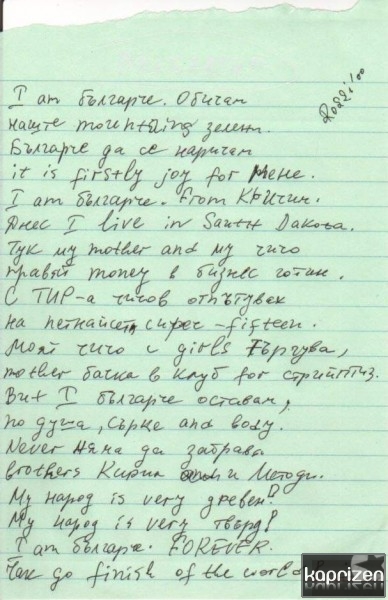 Rozzi!oo
I am българче. Обичам
наште mountaing зелени.
Българче да се наричам
it is firstly joy for мене.
I am българче. from Кричим.
Днес I live in South Dakota.
Тук my mother and му чичо
правят money в бизнес готин.
С ТИР-а чичов отпътувах
на петнайсет сиреч - fifteen.
Моят чичо с girls търгува,
mother бачка в клуб for стрийптиз.
Вит I българче оставам,
по душа, сърце and body.
Never няма да забрава
brothers Кирил и Методи.
My народ is very древен!
My народ is very твърд!
I am българче. FOREVER.
Чак до finish of the world
kaprizen